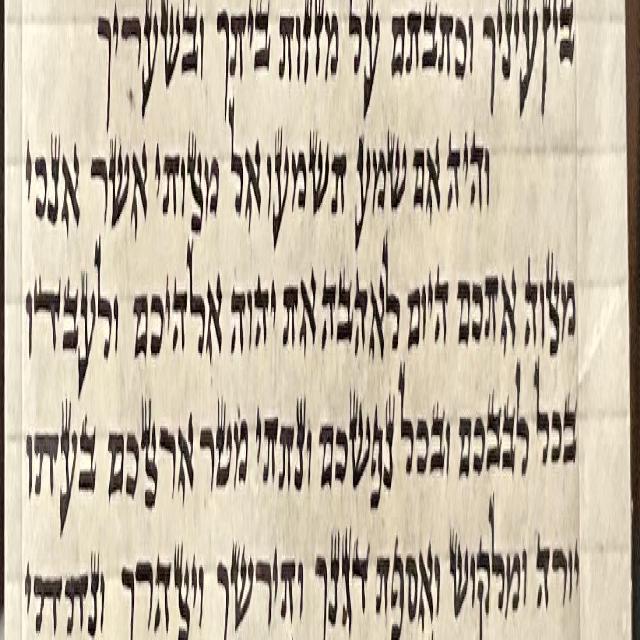 בין עיניך וכתבתם על מזזות ביתך ובשעריך
והיה אם שמע תשמעו אל מצותי אשר אנכי
מצוה אתכם היום לאהבה את יהוה אלהיכם ולעבדו
בכל לבבכם ובכל נפשכם ונתתי מטר ארצכם בעתו
יורה ומלקוש ואספת דגנך ותירשך ויצהרך ונתתי